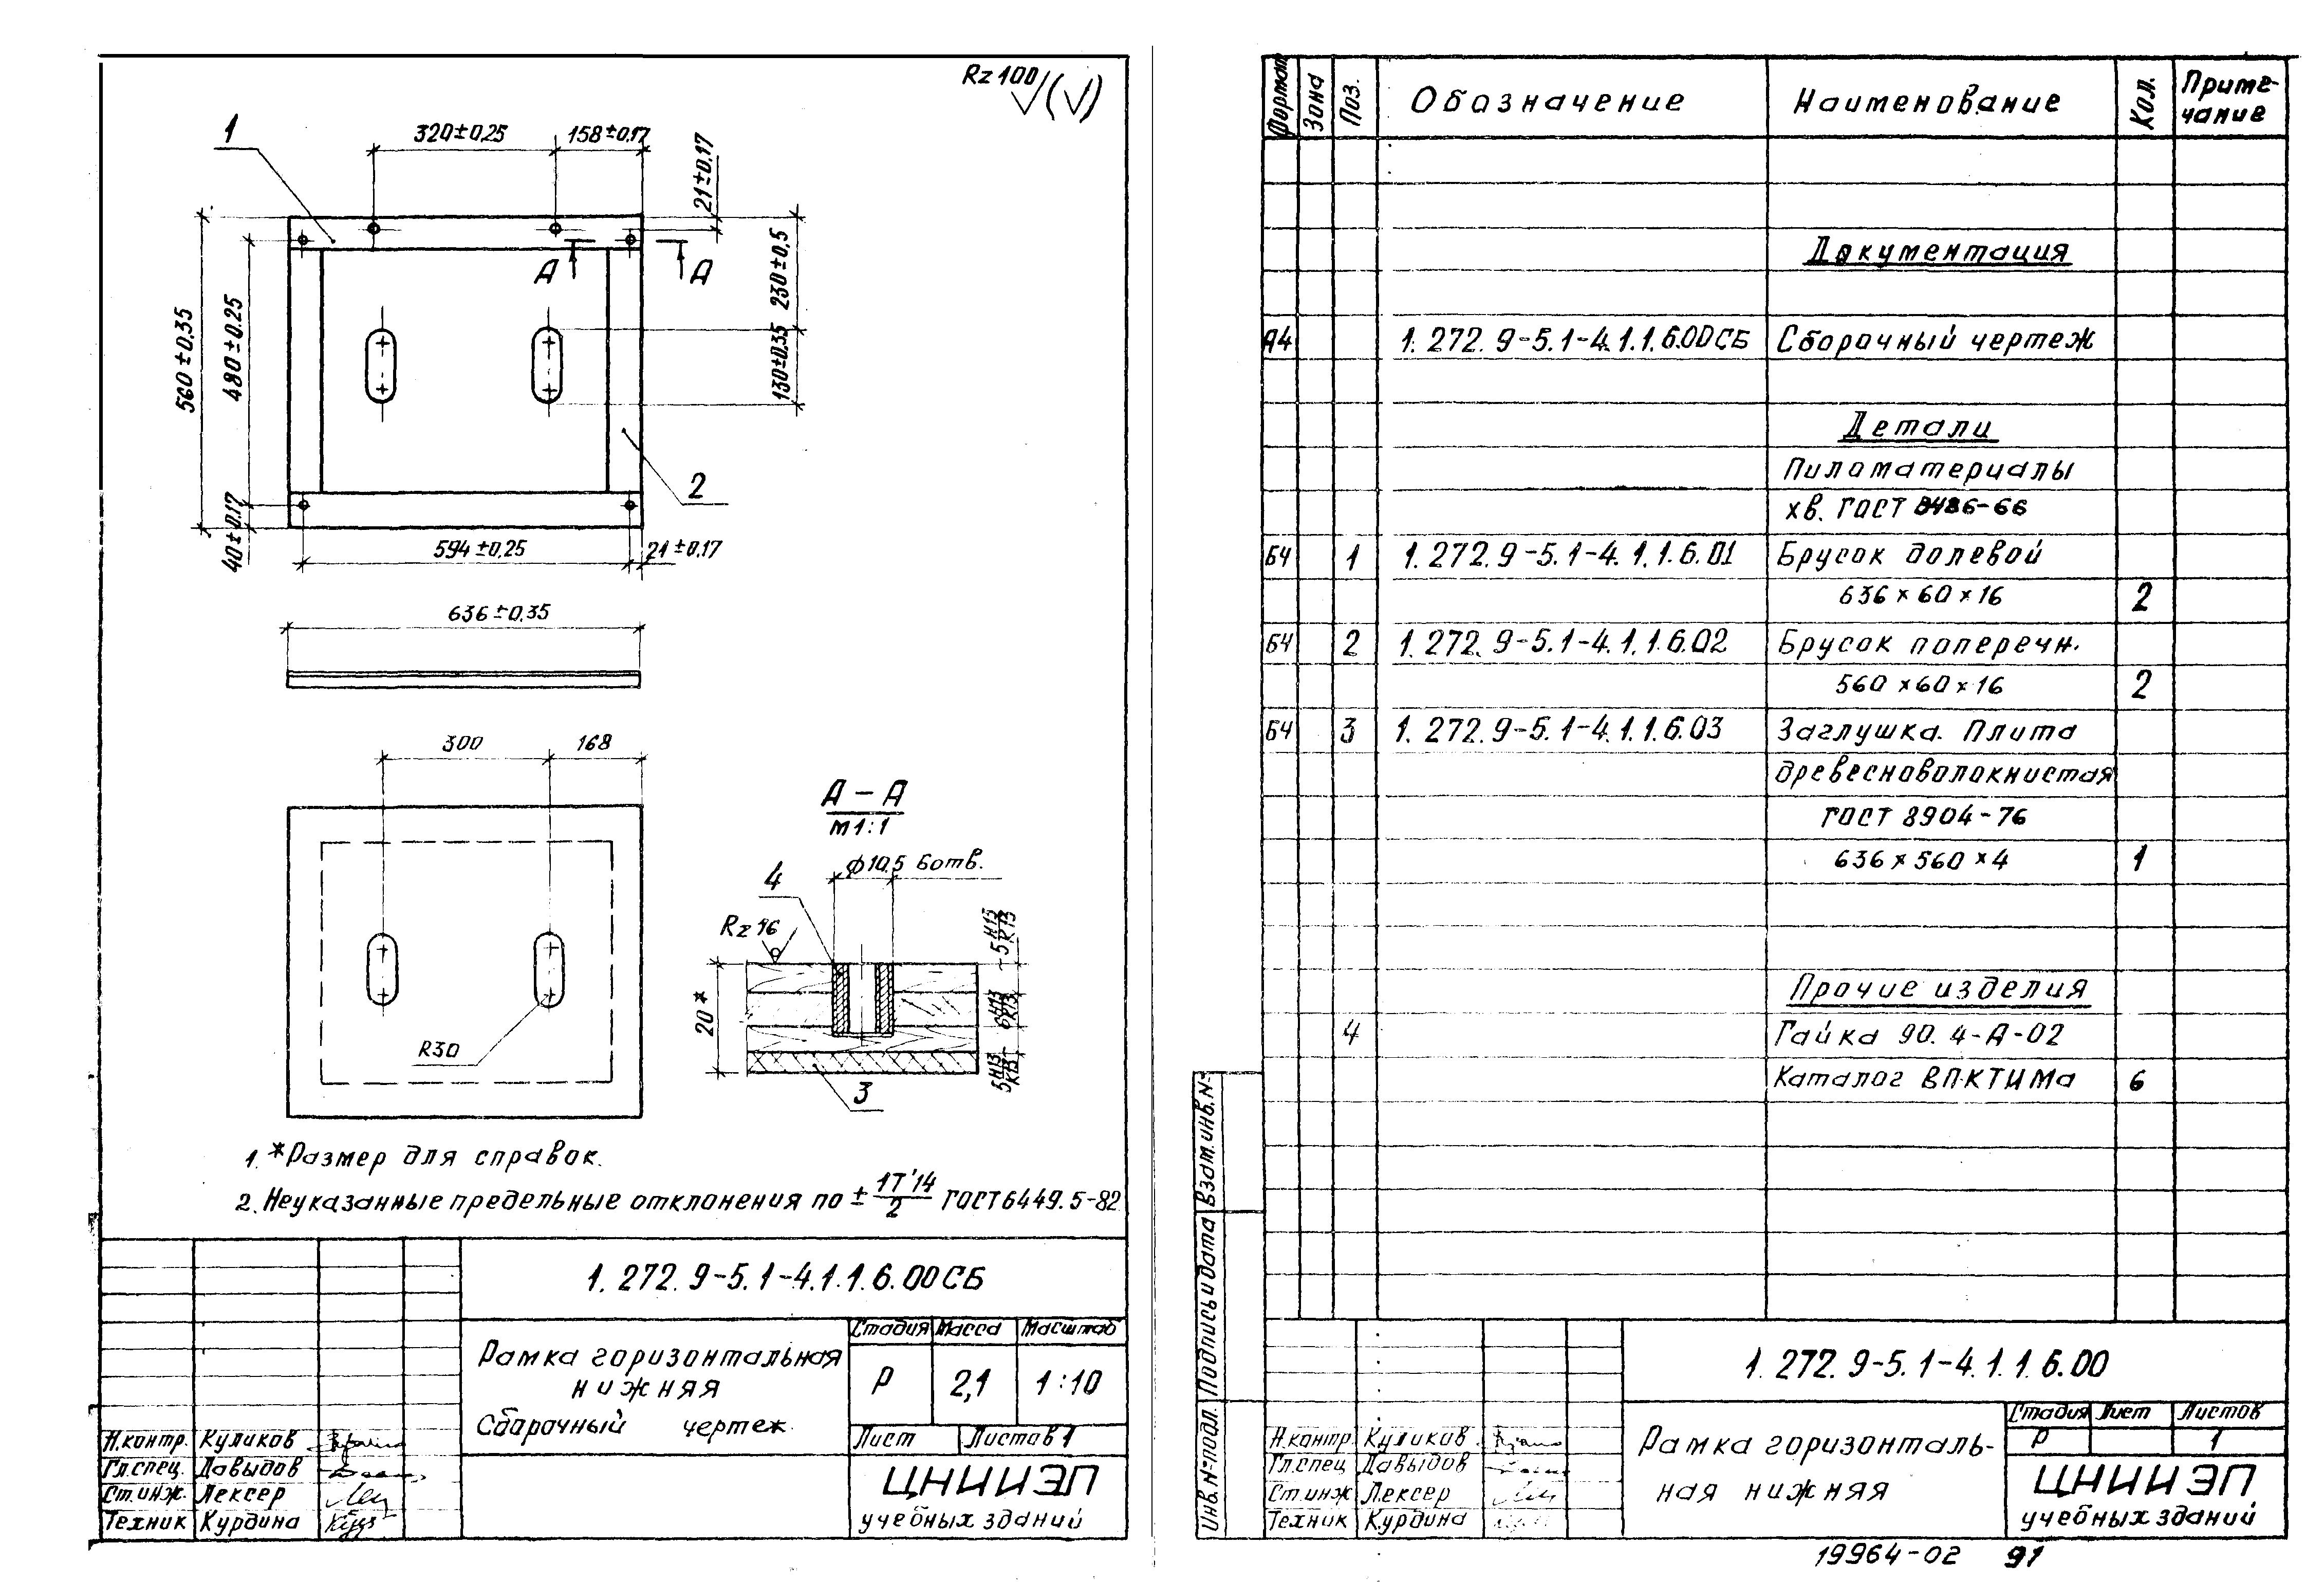 Rz 100 √(√)
1
320±0,25
158±0,17
21±0,17
230±0,5
130±0,35
560±0,35
480±0,25
40±0,17
А
А
2
594±0,25
21±0,17
636±0,35
300
168
R30
А – А
М 1:1
ϕ10,5 6отв.
4
20*
5 H13/k13
6 H13/k13
5 H13/k13
3
1. *Размер для справок.
2. Неуказанные предельные отклонения по ± 1Т'14/2 ГОСТ 6449.5-82.
1.272.9-5.1-4.1.1.6.00СБ
Рамка горизонтальная
нижняя
Сборочный чертеж
Стадия Масса Масштаб
Р 2,1 1:10
Лист Листов 1
Н.контр. Куликов
Гл.спец. Давыдов
Ст.инж. Лексер
Техник Курдина
ЦНИИЭП
учебных зданий
Формат Зона Поз. Обозначение Наименование Кол. Приме-
чание
Документация
А4 1.272.9-5.1-4.1.1.6.00СБ Сборочный чертеж
Детали
Пиломатериалы
хв. ГОСТ 8486-66
БЧ 1 1.272.9-5.1-4.1.1.6.01 Брусок долевой
636×60×16 2
БЧ 2 1.272.9-5.1-4.1.1.6.02 Брусок поперечн.
560×60×16 2
БЧ 3 1.272.9-5.1-4.1.1.6.03 Заглушка. Плита
древесноволокнистая
ГОСТ 8904-76
636×560×4 1
Прочие изделия
4 Гайка 90.4-А-02
Каталог ВПКТИМа 6
Инв.№подл. Подпись и дата Взам.инв.№
1.272.9-5.1-4.1.1.6.00
Рамка горизонталь-
ная нижняя
Стадия Лист Листов
Р 1
Н.контр Куликов
Гл.спец Давыдов
Ст.инж Лексер
Техник Курдина
ЦНИИЭП
учебных зданий
19964-02 91